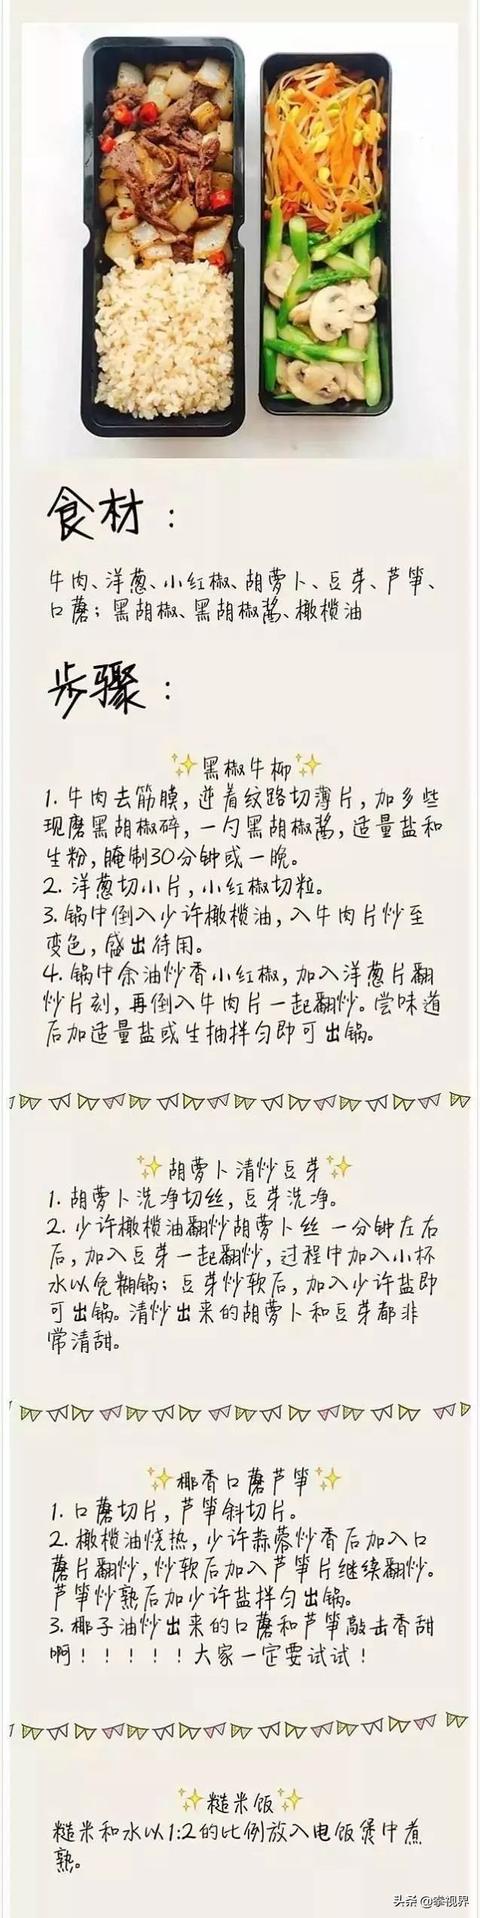 食材：
牛肉、洋葱、小红椒、胡萝卜、豆芽、芦笋、
口蘑；黑胡椒、黑胡椒酱、橄榄油
步骤：
✨黑椒牛柳✨
1. 牛肉去筋膜，逆着纹路切薄片，加多些
现磨黑胡椒碎，一勺黑胡椒酱，适量盐和
生粉，腌制30分钟或一晚。
2. 洋葱切小片，小红椒切粒。
3. 锅中倒入少许橄榄油，入牛肉片炒至
变色，盛出待用。
4. 锅中余油炒香小红椒，加入洋葱片翻
炒片刻，再倒入牛肉片一起翻炒。尝味道
后加适量盐或生抽拌匀即可出锅。
✨胡萝卜清炒豆芽✨
1. 胡萝卜洗净切丝，豆芽洗净。
2. 少许橄榄油翻炒胡萝卜丝 一分钟左右
后，加入豆芽一起翻炒，过程中加入小杯
水以免糊锅；豆芽炒软后，加入少许盐即
可出锅。清炒出来的胡萝卜和豆芽都非
常清甜。
✨椰香口蘑芦笋✨
1. 口蘑切片，芦笋斜切片。
2. 橄榄油烧热，少许蒜蓉炒香后加入口
蘑片翻炒，炒软后加入芦笋片继续翻炒。
芦笋炒熟后加少许盐拌匀出锅。
3. 椰子油炒出来的口蘑和芦笋敲击香甜
啊！！！！！大家一定要试试！
✨糙米饭✨
糙米和水以1:2的比例放入电饭煲中煮
熟。
头条 @拳视界